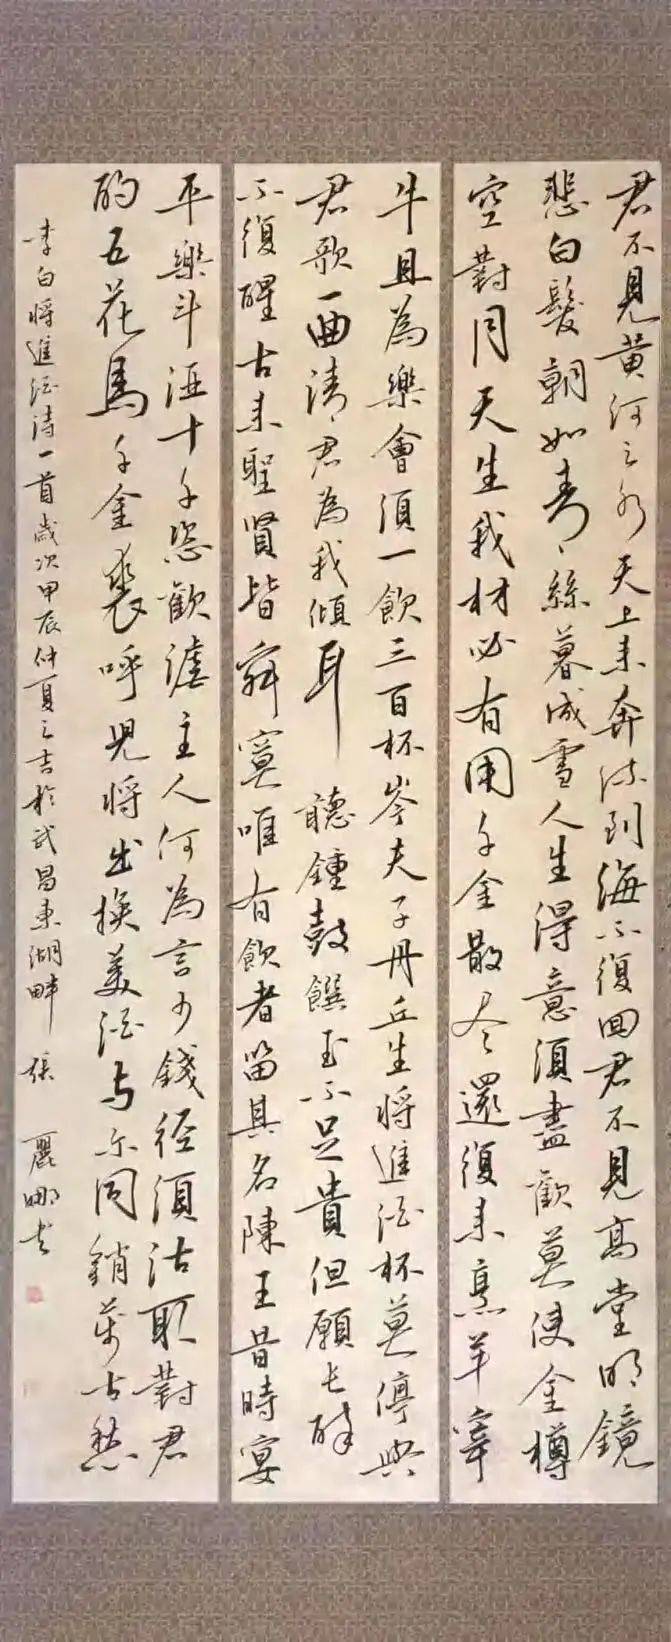 君不見黃河之水天上来奔流到海不復回君不見高堂明鏡
悲白髮朝如青々絲暮成雪人生得意須盡歡莫使金樽
空對月天生我材必有用千金散盡還復来烹羊宰
牛且為樂會須一飲三百杯岑夫子丹丘生將進酒杯莫停與
君歌一曲請君為我傾耳聽鍾鼓饌玉不足貴但願長醉
不復醒古来聖賢皆寂寞唯有飲者留其名陳王昔時宴
平樂斗酒十千恣歡謔主人何為言少錢徑須沽取對君
酌五花馬千金裘呼兒將出換美酒與尔同銷萬古愁
李白將進酒詩一首歲次甲辰仲夏之吉於武昌東湖畔 張麗娜書